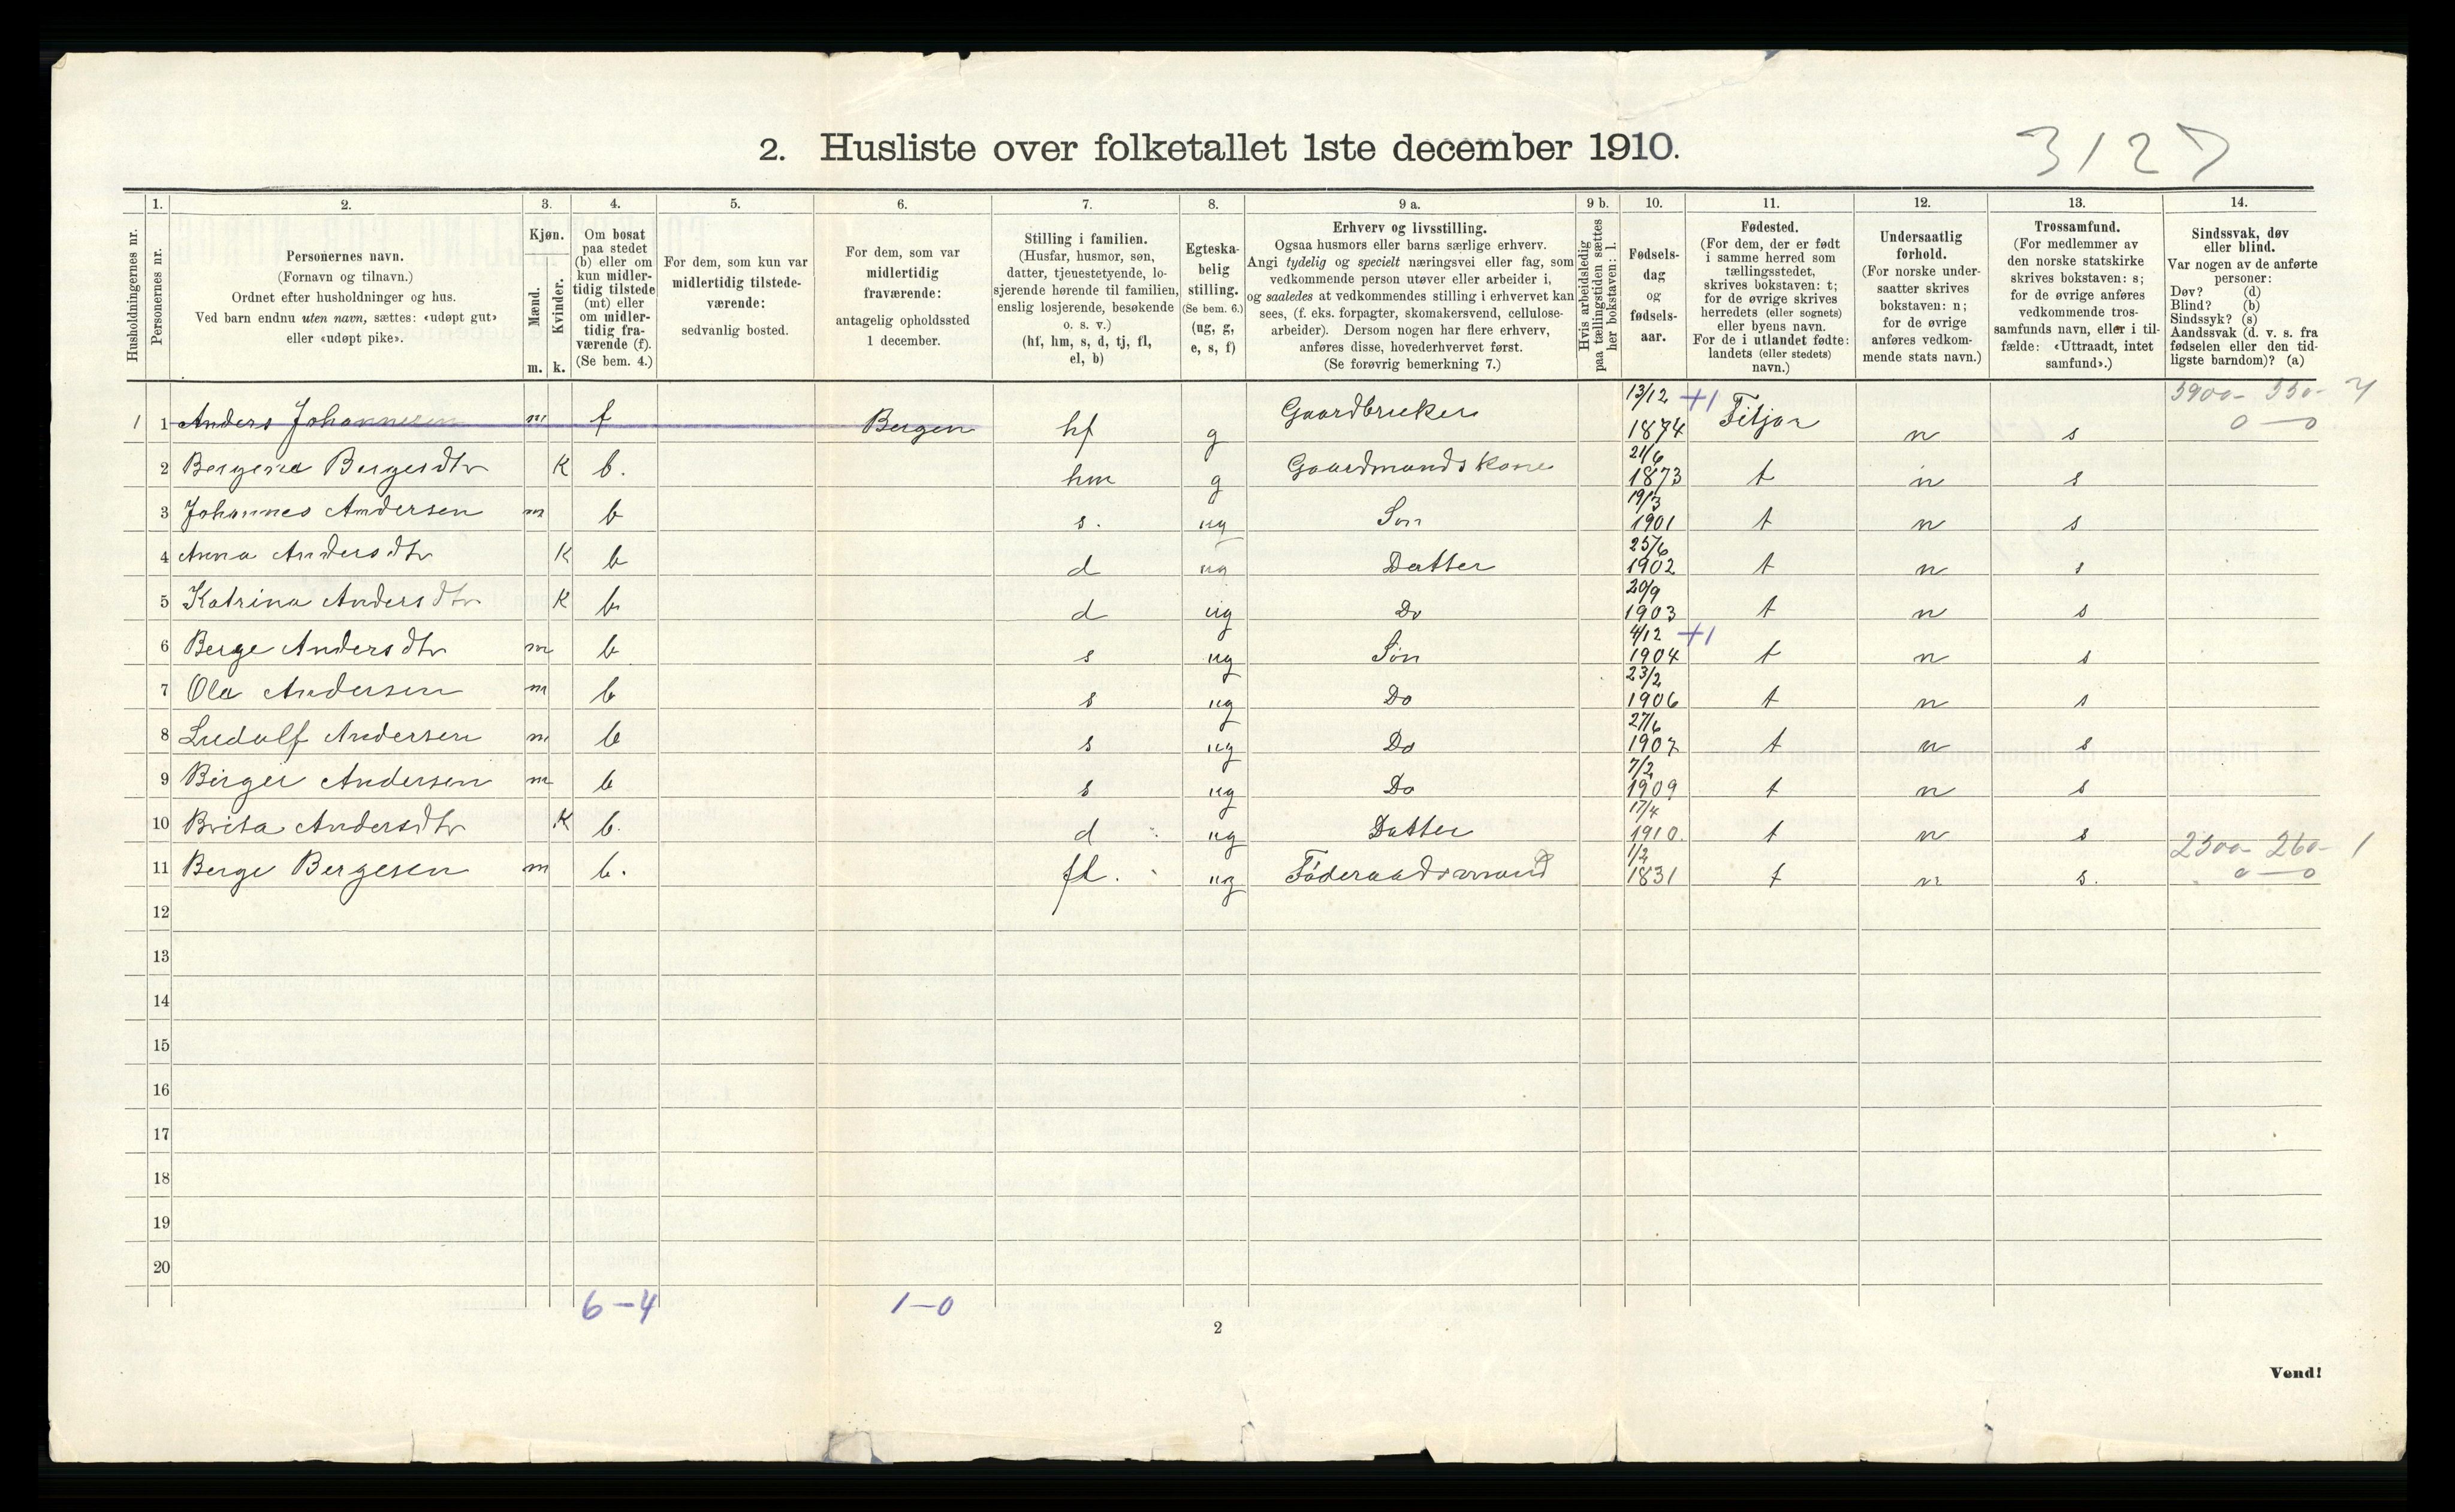 2. Husliste over folketallet 1ste december 1910.
3127
Husholdningernes nr.
1.
Personernes nr.
2.
Personernes navn.
(Fornavn og tilnavn.)
Ordnet efter husholdninger og hus.
Ved barn endnu uten navn, sættes: «udøpt gut»
eller «udøpt pike».
3.
Kjøn.
Mænd.
Kvinder.
m. k.
4.
Om bosat
paa stedet
(b) eller om
kun midler-
tidig tilstede
(mt) eller
om midler-
tidig fra-
værende (f).
(Se bem. 4.)
5.
For dem, som kun var
midlertidig tilstede-
værende:
sedvanlig bosted.
6.
For dem, som var
midlertidig
fraværende:
antagelig opholdssted
1 december.
7.
Stilling i familien.
(Husfar, husmor, søn,
datter, tjenestetyende, lo-
sjerende hørende til familien,
enslig losjerende, besøkende
o. s. v.)
(hf, hm, s, d, tj, fl,
el, b)
8.
Egteska-
belig
stilling.
(Se bem. 6.)
(ug, g,
e, s, f)
9 a.
Erhverv og livsstilling.
Ogsaa husmors eller barns særlige erhverv.
Angi tydelig og specielt næringsvei eller fag, som
vedkommende person utøver eller arbeider i,
og saaledes at vedkommendes stilling i erhvervet kan
sees, (f. eks. forpagter, skomakersvend, cellulose-
arbeider). Dersom nogen har flere erhverv,
anføres disse, hovederhvervet først.
(Se forøvrig bemerkning 7.)
9 b.
Hvis arbeidsledig
paa tællingstiden sættes
her bokstaven: l.
10.
Fødsels-
dag
og
fødsels-
aar.
11.
Fødested.
(For dem, der er født
i samme herred som
tællingsstedet,
skrives bokstaven: t;
for de øvrige skrives
herredets (eller sognets)
eller byens navn.
For de i utlandet fødte:
landets (eller stedets)
navn.)
12.
Undersaatlig
forhold.
(For norske under-
saatter skrives
bokstaven: n;
for de øvrige
anføres vedkom-
mende stats navn.)
13.
Trossamfund.
(For medlemmer av
den norske statskirke
skrives bokstaven: s;
for de øvrige anføres
vedkommende tros-
samfunds navn, eller i til-
fælde: «Uttraadt, intet
samfund».)
14.
Sindssvak, døv
eller blind.
Var nogen av de anførte
personer:
Døv? (d)
Blind? (b)
Sindssyk? (s)
Aandssvak (d. v. s. fra
fødselen eller den tid-
ligste barndom)? (a)
1 1 Anders Johannesen m f Bergen hf g Gaardbruker 13/12 1874 +1 Fitjar n s 0—0
2 Bergena Bergesdtr K b. hm g Gaardmandskone 21/6 1873 t n s
3 Johannes Andersen m b s. ug Søn 19/3 1901 t n s
4 Anna Andersdtr K b d ug Datter 25/6 1902 t n s
5 Katrina Andersdtr K b d ug Do 20/9 1903 t n s
6 Berge Andersdtr m b s ug Søn 4/12 1904 +1 t n s
7 Ola Andersen m b s ug Do 23/2 1906 t n s
8 Ludolf Andersen m b s ug Do 27/6 1907 t n s
9 Birger Andersen m b s ug Do 7/2 1909 t n s
10 Brita Andersdtr K b. d ug Datter 17/4 1910. t n s
11 Berge Bergesen m b. fl. ug Føderaadsmand 1/2 1831 t n s. 2300- 260- 1 0—0
12
13
14
15
16
17
18
19
20
6—4 1—0
2
Vend!